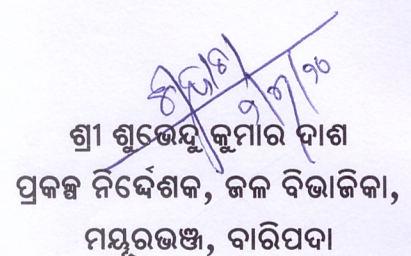 ଶ୍ରୀ ଶୁଭେନ୍ଦୁ କୁମାର ଦାଶ
ପ୍ରକଳ୍ପ ନିର୍ଦ୍ଦେଶକ, ଜଳ ବିଭାଜିକା,
ମୟୂରଭଞ୍ଜ, ବାରିପଦା